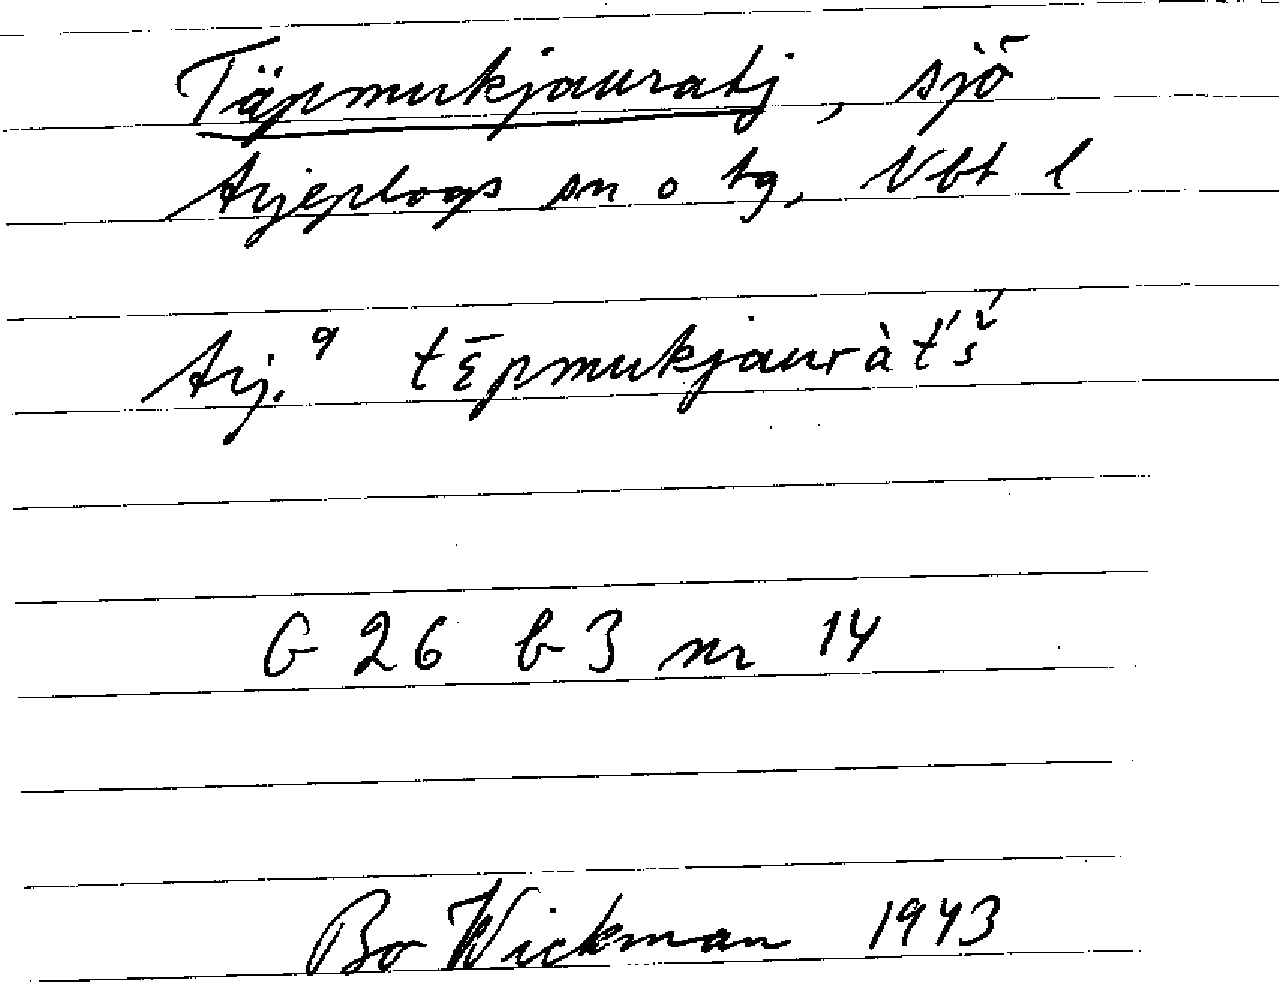 Täpmukjauratj, sjö
Arjeplogs sn o tg, Vbt l
Arj.9 tɛ̄pmukjauràt́š́
G 26 b 3 nr 14
Bo Wickman 1943